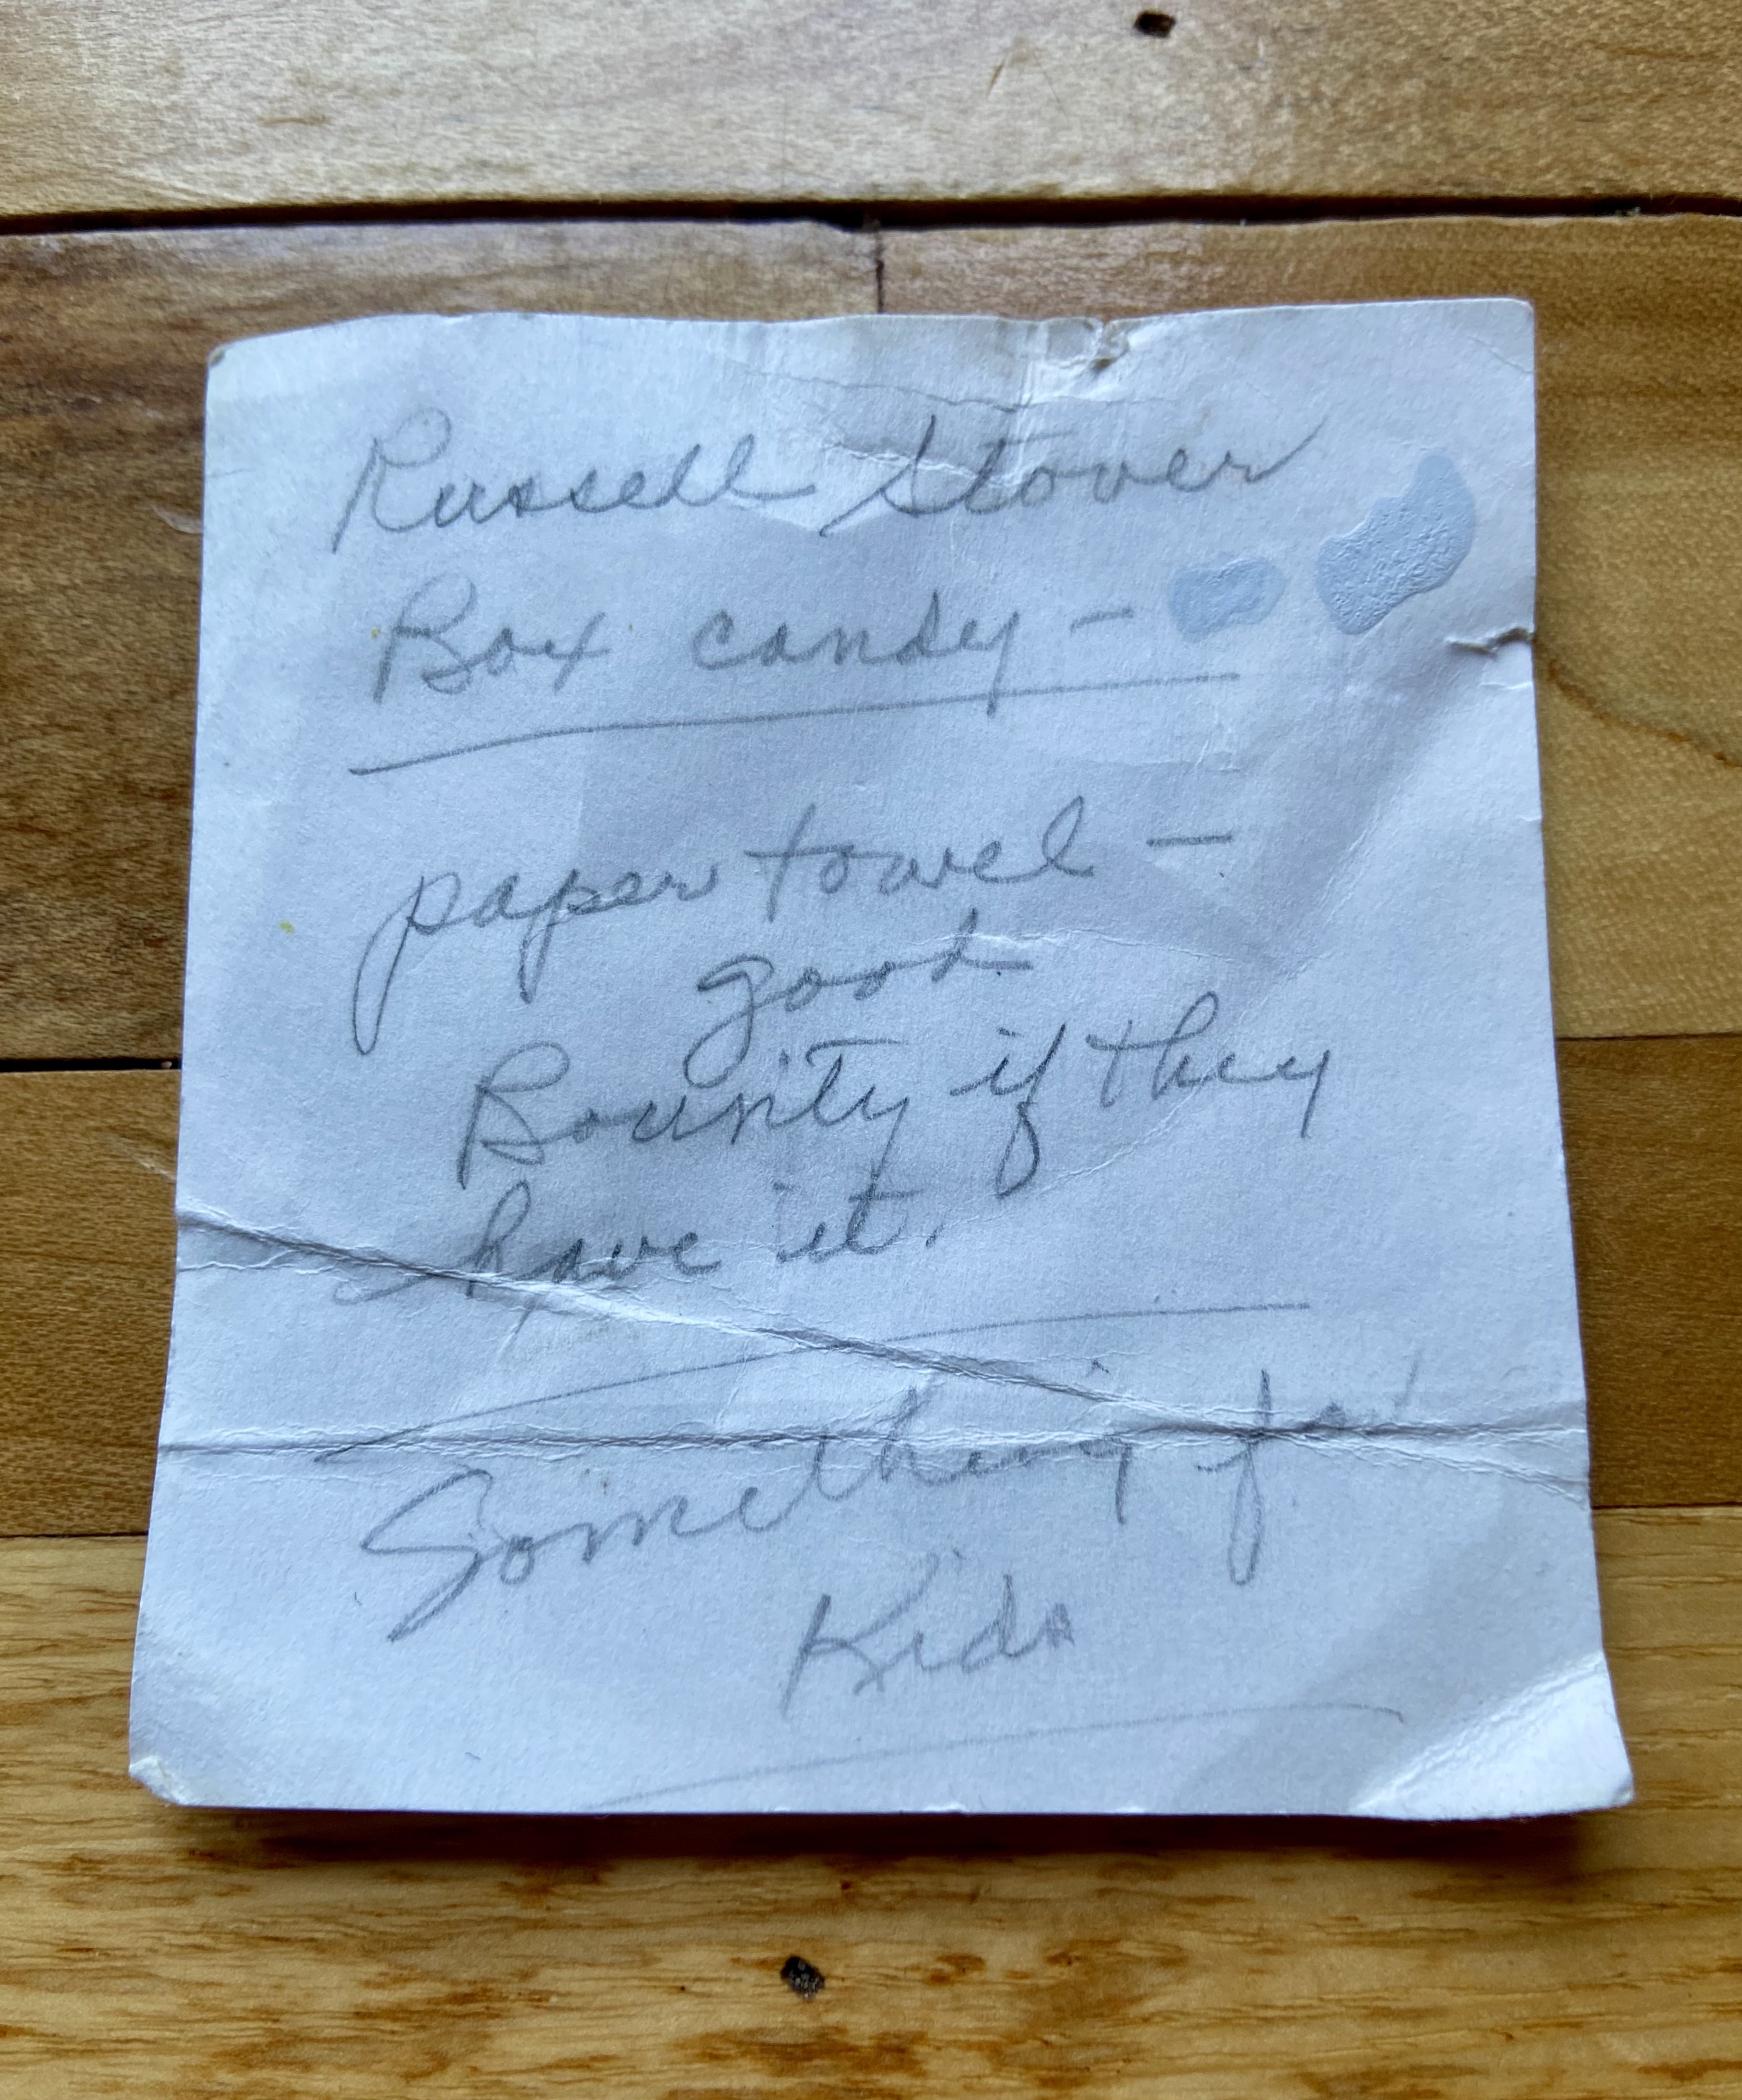 Russell Stover
Box candy –
paper towel –
good
Bounty if they
have it.
Something for
Kids